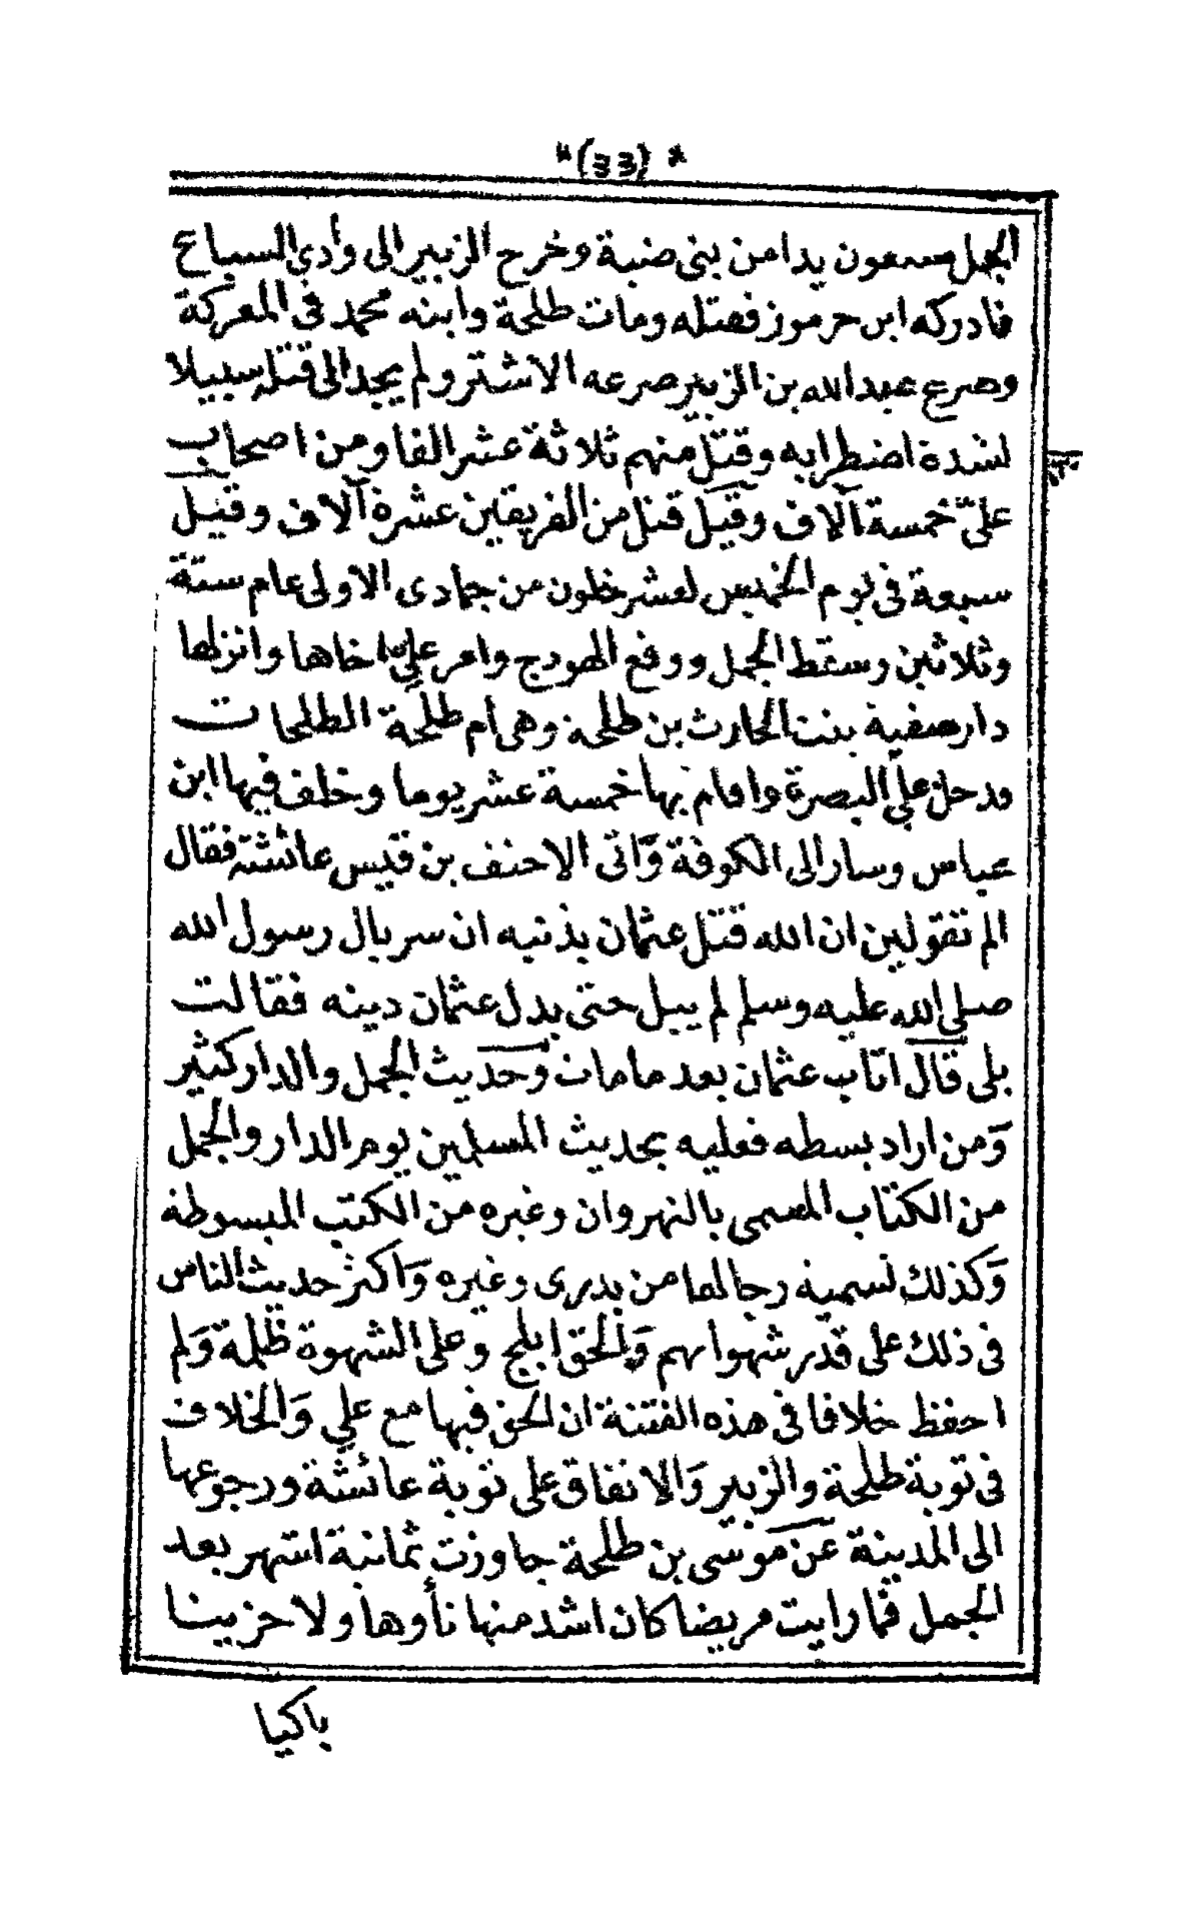 *(٤٤)*
الجمل سبعون يدا من بنى ضبة وخرج الزبير الى وادى السباع
فادركه ابن جرموز فقتله ومات طلحة وابنه محمد فى المعركة
وصرع عبد الله بن الزبير صرعه الاشتر ولم يجد الى قتله سبيلا
لشدة اضطرابه وقتل منهم ثلاثة عشر الفا ومن اصحاب
علىّ خمسة آلاف وقيل قتل من الفريقين عشرة آلاف وقيل
سبعة فى يوم الخميس لعشر خلون من جمادى الاولى عام ستة
وثلاثين وسقط الجمل ووقع الهودج وامر علىّ اخاها وانزلها
دار صفية بنت الحارث بن طلحة وهى ام طلحة الطلحات
ودخل على البصرة واقام بها خمسة عشر يوما وخلف فيها ابن
عباس وسار الى الكوفة وَاتى الاحنف بن قيس عائشة فقال
الم تقولين ان الله قتل عثمان بذنبه ان سربال رسول الله
صلى الله عليه وسلم لم يبل حتى بدل عثمان دينه فقالت
بلى قال اتاب عثمان بعد ما مات وحديث الجمل والدار كثير
وَمن اراد بسطه فعليه بحديث المسلمين يوم الدار والجمل
من الكتاب المسمى بالنهروان وغيره من الكتب المبسوطة
وَكذلك تسمية رجالها من بدرى وغيره وَاكثر حديث الناس
فى ذلك على قدر شهواتهم وَالحق ابلج وعلى الشهوة ظلمة وَلم
احفظ خلافا فى هذه الفتنة ان الحق فيها مع علي وَالخلاف
فى توبة طلحة والزبير وَالاتفاق على توبة عائشة ورجوعها
الى المدينة عن موسى بن طلحة جاوزت ثمانية اشهر بعد
الجمل فما رايت مريضا كان اشد منها تأوها ولا حزينا
باكيا